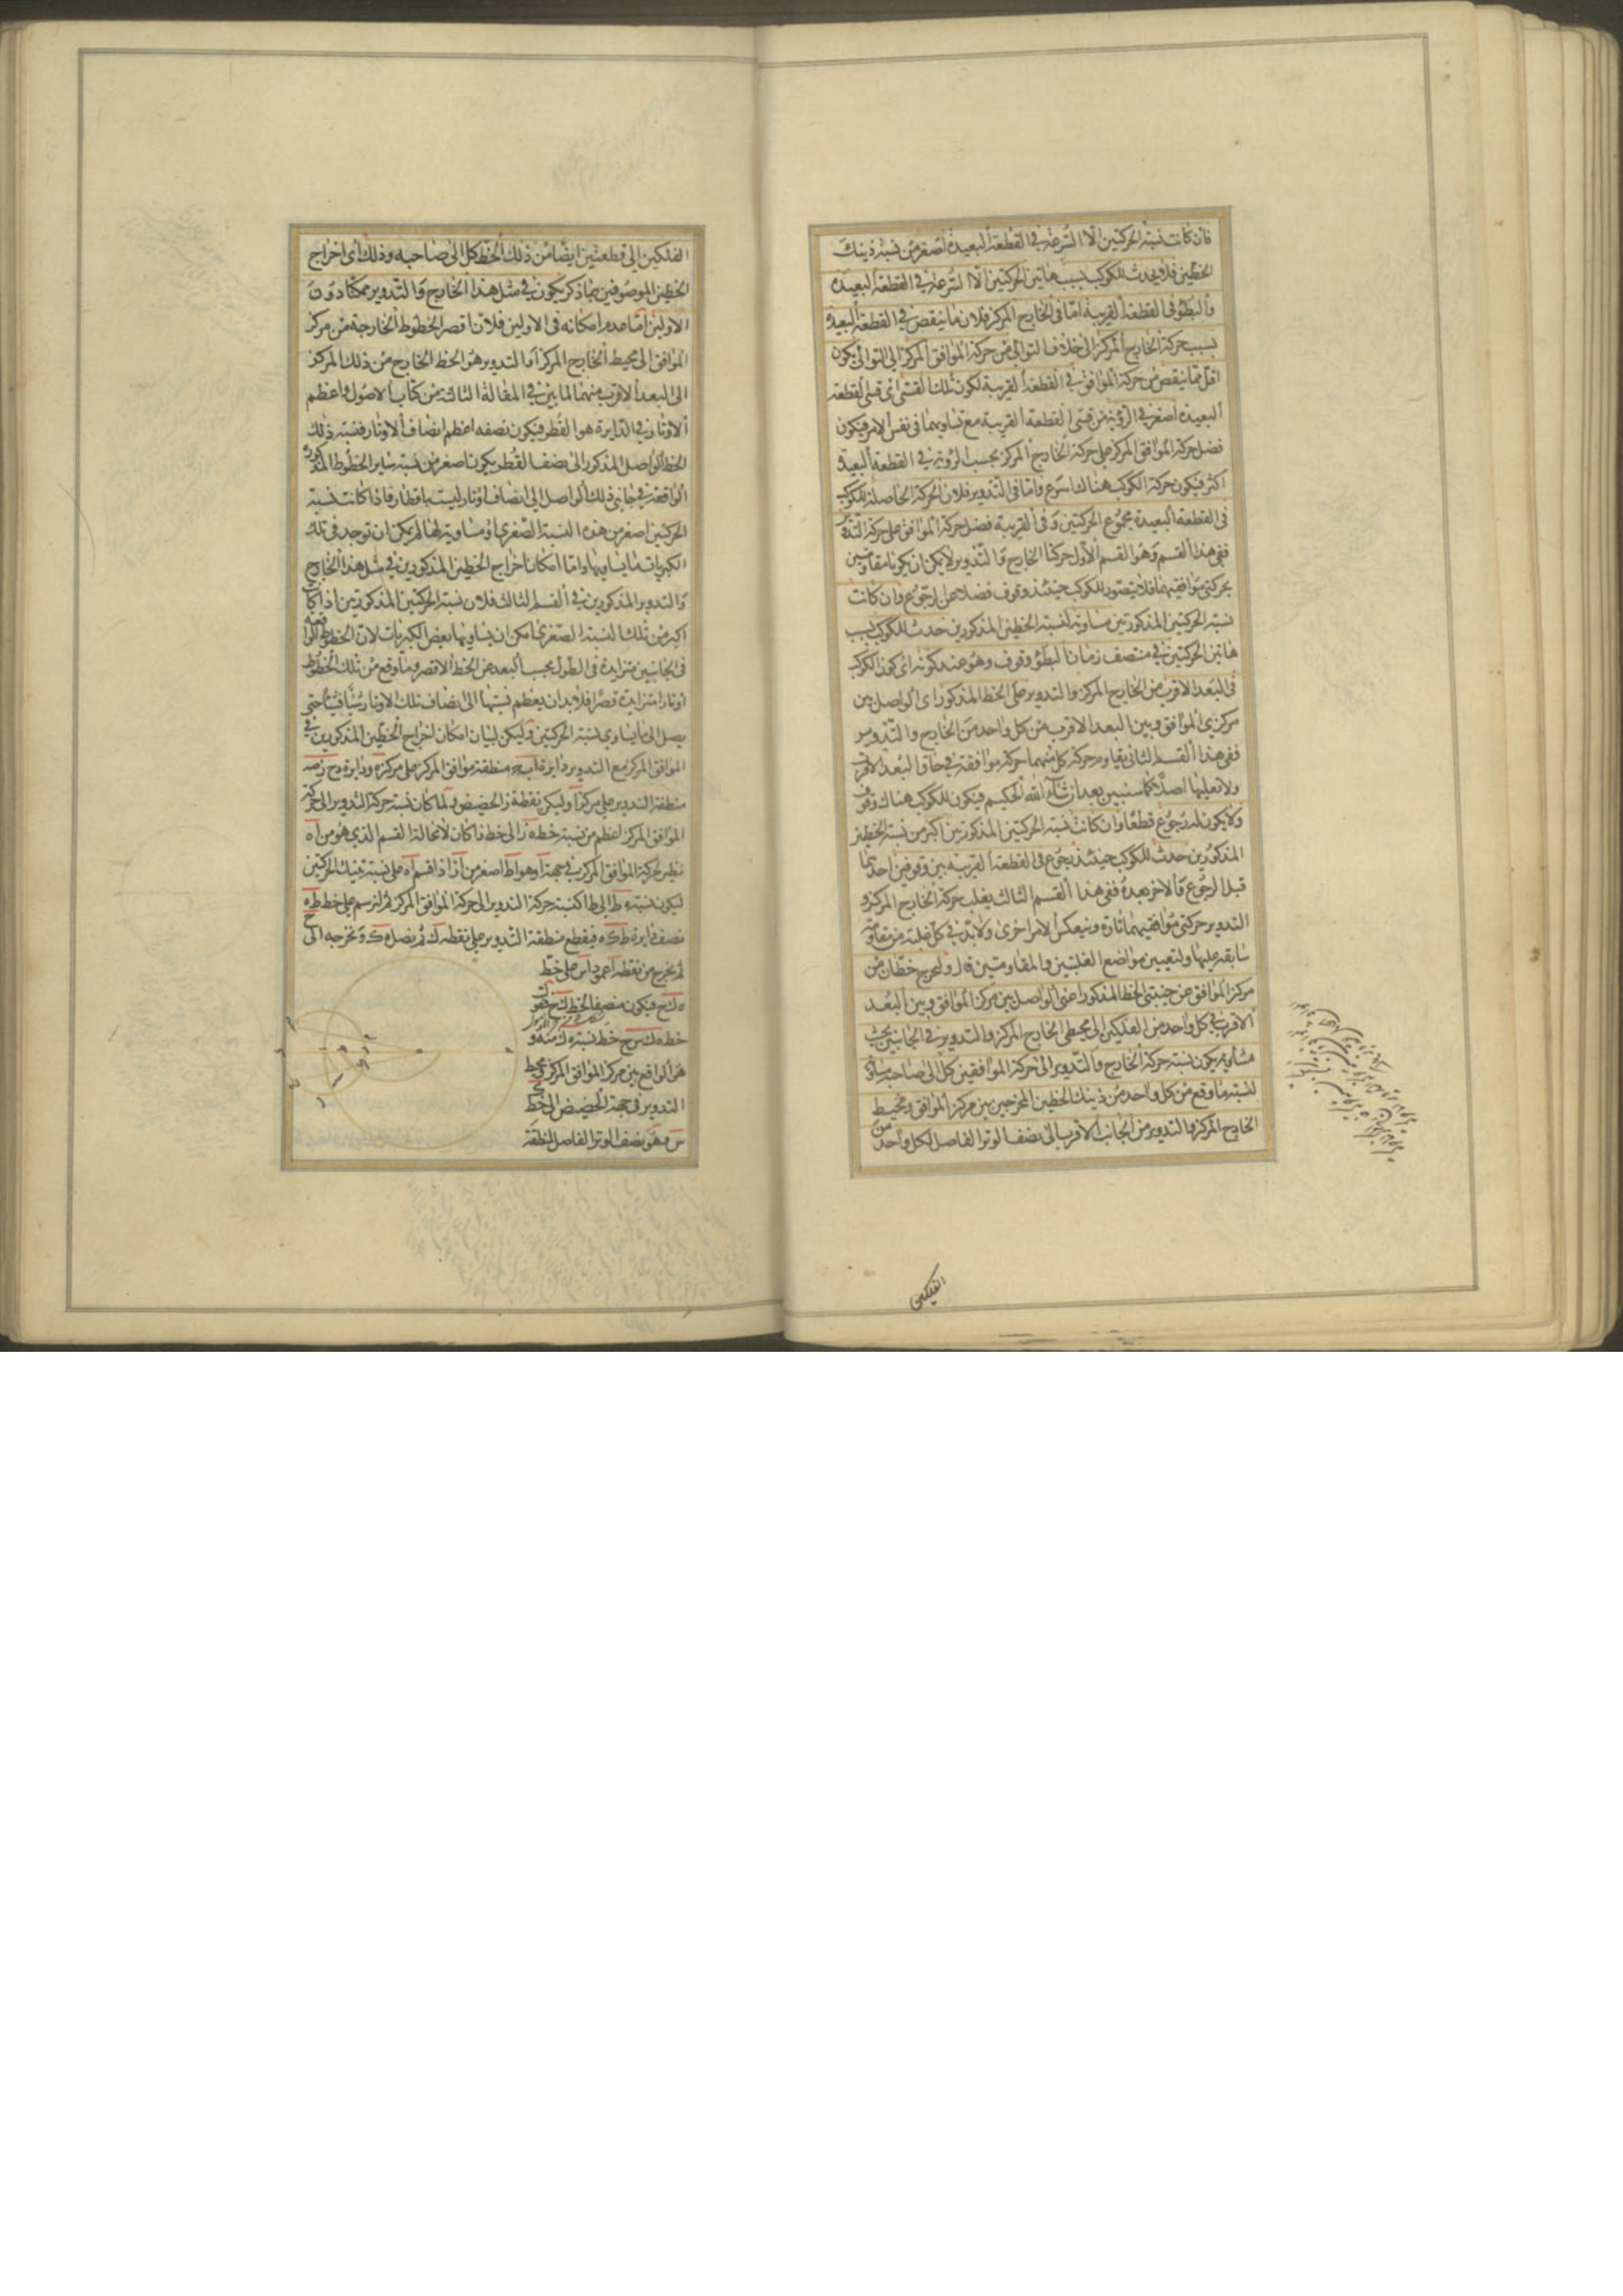 فان كانت نسبة الحركتين الا السرعة في القطعة البعيدة اصغر من نسبة ذينك
الخطين فلا يحدث للكوكب بسبب هاتين الحركتين الا السرعة في القطعة البعيدة
والبطؤ في القطعة القريبة اما في الخارج المركز فلان ما ينقص في القطعة البعيدة
بسبب حركة الخارج المركز الى خلاف التوالي من حركة الموافق المركز الى التوالي يكون
اقل مما ينقص من حركة الموافق في القطعة القريبة لكون تلك القسى اى قسى القطعة
البعيدة اصغر في الرؤية من قسى القطعة القريبة مع تساويهما في نفس الامر فيكون
فضل حركة الموافق المركز على حركة الخارج المركز بحسب الرؤية في القطعة البعيدة
اكثر فيكون حركة الكوكب هناك اسرع واما في التدوير فلان الحركة الحاصلة للكوكب
في القطعة البعيدة مجموع الحركتين وفي القريبة فضل حركة الموافق على حركة التدوير
ففي هذا القسم وهو القسم الاول حركتا الخارج والتدوير لا يمكن ان يكونا مقاومتين
بحركتي موافقيهما فلا يتصور للكوكب حينئذ وقوف فضلا عن رجوع وان كانت
نسبة الحركتين المذكورتين مساوية لنسبة الخطين المذكورين حدث للكوكب بسبب
هاتين الحركتين في منتصف زمان البطؤ وقوف وهو عند كونه اى كون الكوكب
في البعد الاقرب من الخارج المركز والتدوير على الخط المذكور اى الواصل بين
مركزى الموافق وبين البعد الاقرب من كل واحد من الخارج والتدوير
ففي هذا القسم الثاني يقاوم حركة كل منهما حركة موافقة في حاق البعد الاقرب
ولا تغلبها اصلا كما سنبين بعد ان شاء الله الحكيم فيكون للكوكب هناك وقوف
ولا يكون له رجوع قطعا وان كانت نسبة الحركتين المذكورتين اكبر من نسبة الخطين
المذكورين حدث للكوكب حينئذ رجوع في القطعة القريبة بين وقوفين احدهما
قبل الرجوع والاخر بعده ففي هذا القسم الثالث يغلب حركة الخارج المركز و
التدوير حركتي موافقيهما تارة وينعكس الامر اخرى ولا بد في كل غلبة من مقاومة
سابقة عليها ولتعيين مواضع الغلبتين والمقاومتين قال وليخرج خطان من
مركز الموافق عن جنبتي الخط المذكور اعنى الواصل بين مركز الموافق وبين البعد
الاقرب في كل واحد من الفلكين الى محيطى الخارج المركز والتدوير في الجانبين بحيث
يكون نسبة حركة الخارج والتدوير الى حركة الموافقين كل الى صاحبه مساوية
لنسبة ما وقع من كل واحد من ذينك الخطين المخرجين بين مركز الموافق ومحيط
الخارج المركز والتدوير من الجانب الاقرب الى نصف الوتر الفاصل لكل واحد من
الفلكين
الفلكين الى قطعتين ايضا من ذلك الخط كل الى صاحبه وذلك اى اخراج
الخطين الموصوفين بما ذكر يكون في مثل هذا الخارج والتدوير ممكنا دون
الاولين اما عدم امكانه في الاولين فلان اقصر الخطوط الخارجة من مركز
الموافق الى محيط الخارج المركز او التدوير هو الخط الخارج من ذلك المركز
الى البعد الاقرب منهما لما بين في المقالة الثالثة من كتاب الاصول واعظم
الاوتار في الدايرة هو القطر فيكون نصفه اعظم انصاف الاوتار فنسبة ذلك
الخط الواصل المذكور الى نصف القطر يكون اصغر من نسبة ساير الخطوط المذكورة
الواقعة في جانبي ذلك الواصل الى انصاف اوتار ليست باقطار فاذا كانت نسبة
الحركتين اصغر من هذه النسبة الصغرى او مساوية لها لم يمكن ان توجد في تلك
الكبريات ما يساويها واما امكان اخراج الخطين المذكورين في مثل هذا الخارج
والتدوير المذكورين في القسم الثالث فلان نسبة الحركتين المذكورتين اذا كانت
اكبر من تلك النسبة الصغرى امكن ان يساويها بعض الكبريات لان الخطوط الواقعة
في الجانبين متزايدة في الطول بحسب البعد عن الخط الاقصر وما وقع من تلك الخطوط
اوتارا متزايدة قصرا فلا بد ان يعظم نسبتها الى انصاف تلك الاوتار شيئا فشيئا حتى
يصل الى ما يساوى نسبة الحركتين وليكن لبيان امكان اخراج الخطين المذكورين في
الموافق المركز مع التدوير دايرة اب منطقة موافق المركز على مركز ه ودايرة دح زصه
منطقة التدوير على مركز ا وليكن نقطة ز الحضيض ولما كان نسبة حركة التدوير الى حركة
الموافق المركز اعظم من نسبة خط ه ز الى خط زا كان لا محالة القسم الذي هو من اه
نظير لحركة الموافق المركز في جهة ا وهو اط اصغر من از اذا قسم اه على نسبة تينك الحركتين
ليكون نسبة ه ط الى طا كنسبة حركة التدوير الى حركة الموافق المركز ثم لنرسم على خط طه
نصف دايرة طكه فيقطع منطقة التدوير على نقطة ك ثم يصل ه ك ونخرجه الى ح
ثم نخرج من نقطة ا عمود اس على خط
ه ك ح فيكون منصفا لخط ك ح
خط ه ك س ح خط نسبة ه ك منه و
هو الواقع بين مركز الموافق المركز ومحيط
التدوير في جهة الحضيض الى خط ك
س وهو نصف الوتر الفاصل لمنطقة